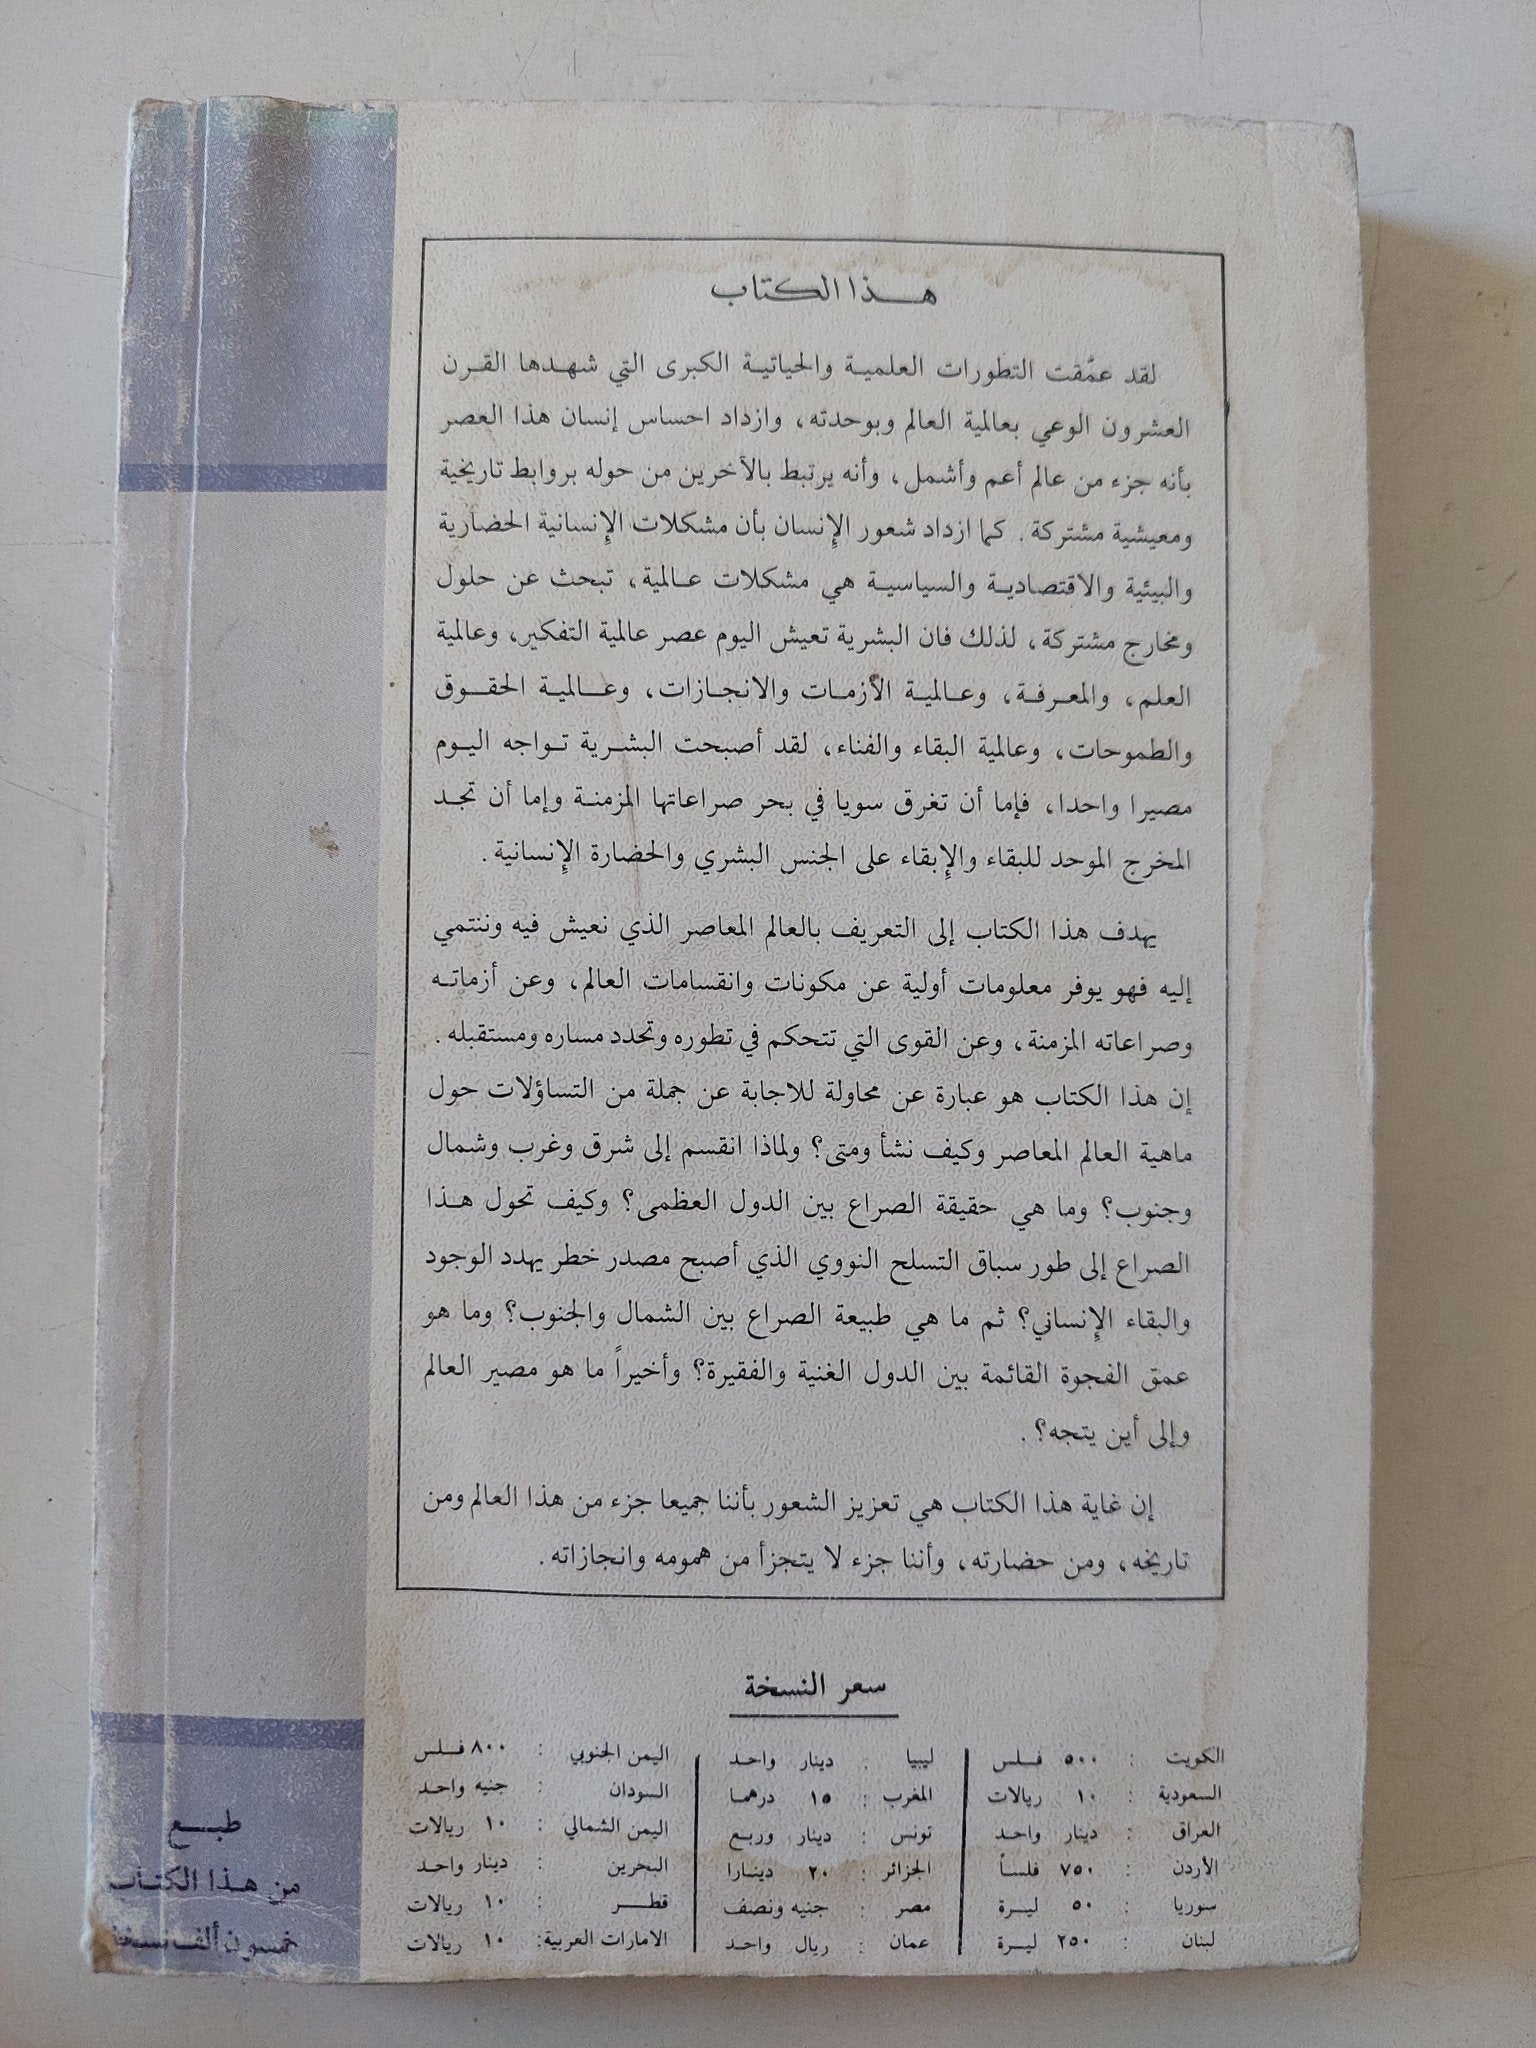 هذا الكتاب
لقد عمّقت التطورات العلمية والحياتية الكبرى التي شهدها القرن
العشرون الوعي بعالمية العالم وبوحدته، وازداد احساس إنسان هذا العصر
بأنه جزء من عالم أعم وأشمل، وأنه يرتبط بالآخرين من حوله بروابط تاريخية
ومعيشية مشتركة. كما ازداد شعور الإنسان بأن مشكلات الإنسانية الحضارية
والبيئية والاقتصادية والسياسية هي مشكلات عالمية، تبحث عن حلول
ومخارج مشتركة، لذلك فان البشرية تعيش اليوم عصر عالمية التفكير، وعالمية
العلم، والمعرفة، وعالمية الأزمات والانجازات، وعالمية الحقوق
والطموحات، وعالمية البقاء والفناء، لقد أصبحت البشرية تواجه اليوم
مصيرا واحدا، فإما أن تغرق سويا في بحر صراعاتها المزمنة وإما أن تجد
المخرج الموحد للبقاء والإبقاء على الجنس البشري والحضارة الإنسانية.
يهدف هذا الكتاب إلى التعريف بالعالم المعاصر الذي نعيش فيه وننتمي
إليه فهو يوفر معلومات أولية عن مكونات وانقسامات العالم، وعن أزماته
وصراعاته المزمنة، وعن القوى التي تتحكم في تطوره وتحدد مساره ومستقبله.
إن هذا الكتاب هو عبارة عن محاولة للاجابة عن جملة من التساؤلات حول
ماهية العالم المعاصر وكيف نشأ ومتى؟ ولماذا انقسم إلى شرق وغرب وشمال
وجنوب؟ وما هي حقيقة الصراع بين الدول العظمى؟ وكيف تحول هذا
الصراع إلى طور سباق التسلح النووي الذي أصبح مصدر خطر يهدد الوجود
والبقاء الإنساني؟ ثم ما هي طبيعة الصراع بين الشمال والجنوب؟ وما هو
عمق الفجوة القائمة بين الدول الغنية والفقيرة؟ وأخيراً ما هو مصير العالم
وإلى أين يتجه؟.
إن غاية هذا الكتاب هي تعزيز الشعور بأننا جميعا جزء من هذا العالم ومن
تاريخه، ومن حضارته، وأننا جزء لا يتجزأ من همومه وانجازاته.
سعر النسخة
الكويت : ٥٠٠ فلس
السعودية : ١٠ ريالات
العراق : دينار واحد
الأردن : ٧٥٠ فلساً
سوريا : ٥٠ ليرة
لبنان : ٢٥٠ ليرة
ليبيا : دينار واحد
المغرب : ١٥ درهما
تونس : دينار وربع
الجزائر : ٢٠ دينارا
مصر : جنيه ونصف
عمان : ريال واحد
اليمن الجنوبي : ٨٠٠ فلس
السودان : جنيه واحد
اليمن الشمالي : ١٠ ريالات
البحرين : دينار واحد
قطر : ١٠ ريالات
الامارات العربية: ١٠ ريالات
طبع
من هذا الكتاب
خمسون ألف نسخة